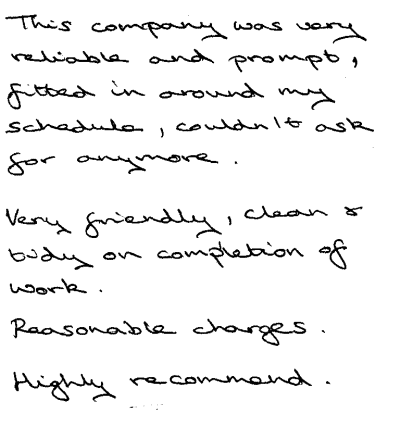 This company was very
reliable and prompt,
fitted in around my
schedule, couldn't ask
for anymore.
Very friendly, clean &
tidy on completion of
work.
Reasonable charges.
Highly recommend.